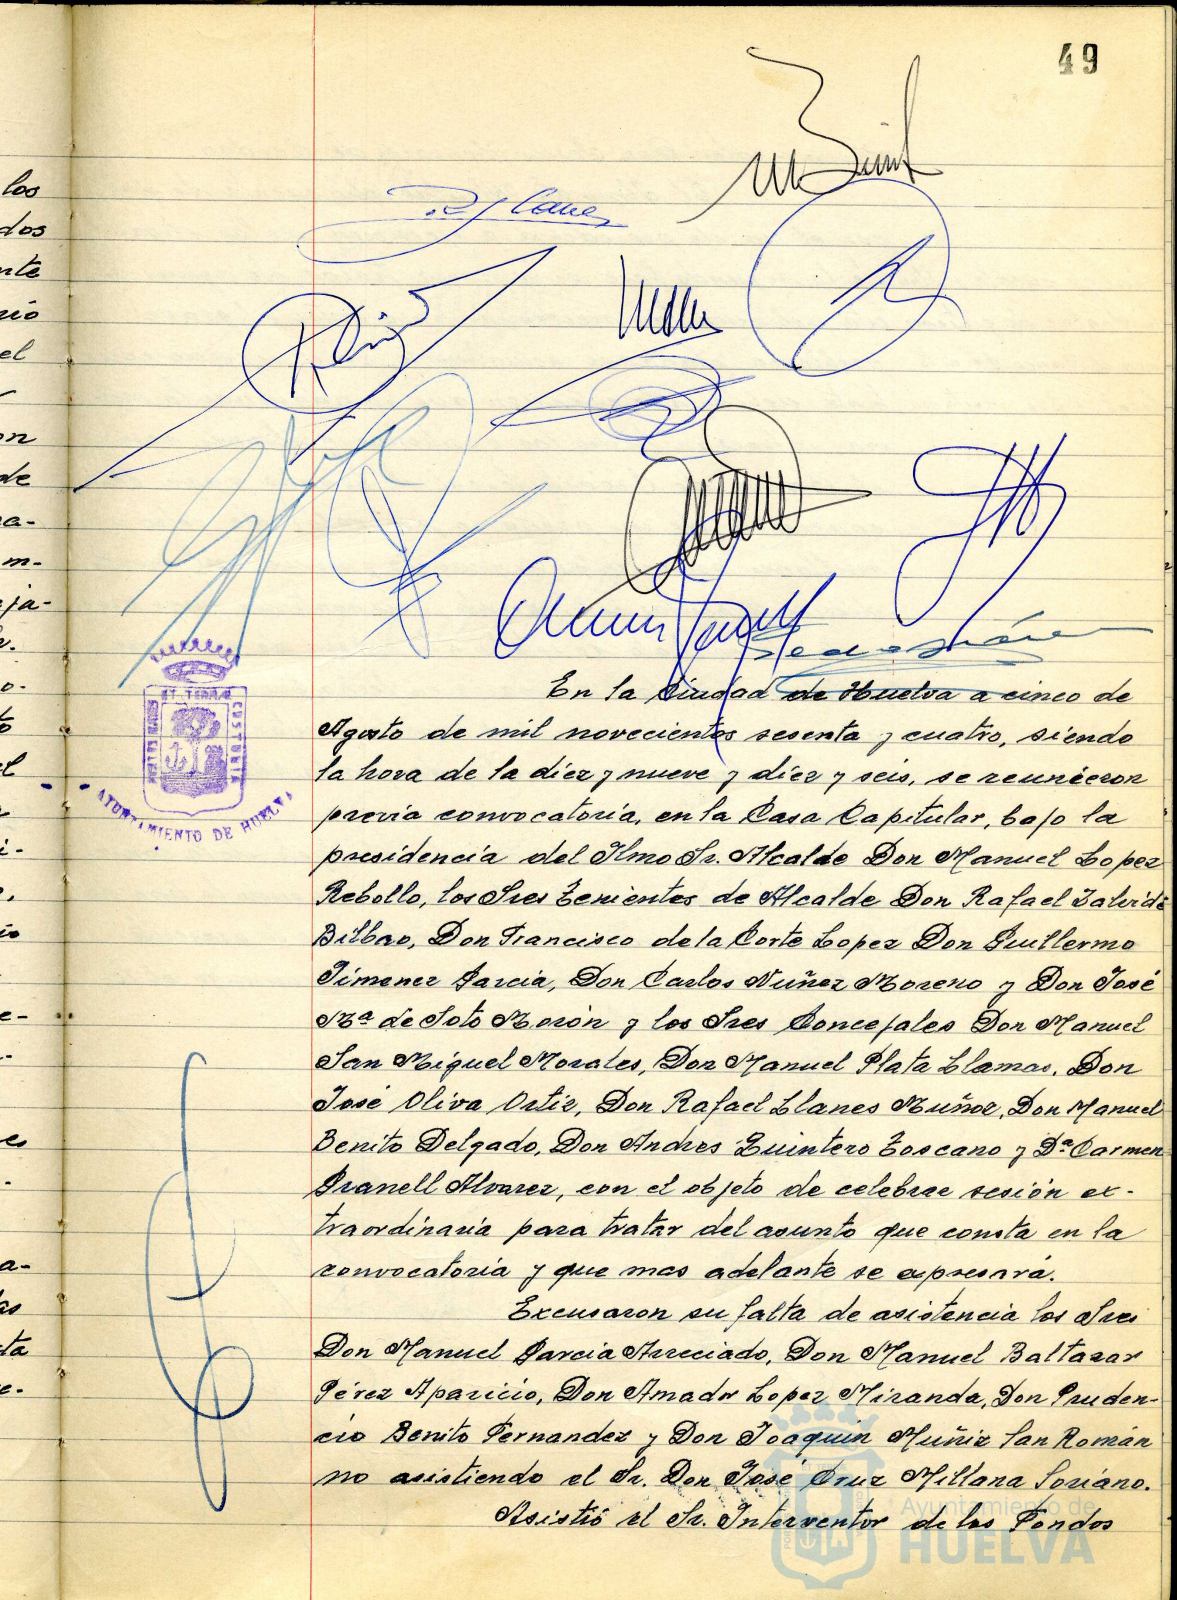 49
los
dos
nte
rio
el
on
de
ra-
m-
ja-
o-
to
el
i-
e-
es
a-
as
ta
e-
PORTUS MARIS ET TERRAE CUSTODIA
AYUNTAMIENTO DE HUELVA
En la Ciudad de Huelva a cinco de
Agosto de mil novecientos sesenta y cuatro, siendo
la hora de la diez y nueve y diez y seis, se reunieron
previa convocatoria, en la Casa Capitular, bajo la
presidencia del Ilmo Sr. Alcalde Don Manuel Lopez
Rebollo, los Sres Tenientes de Alcalde Don Rafael
Bilbao, Don Francisco de la Corte Lopez Don Guillermo
Jimenez Garcia, Don Carlos Nuñez Moreno y Don José
Mª de Soto Morón y los Sres Concejales Don Manuel
San Miguel Morales, Don Manuel Plata Llamas, Don
José Oliva Ortiz, Don Rafael Llanes Muñoz, Don Manuel
Benito Delgado, Don Andres Quintero Toscano y Dª Carmen
Granell Alvarez, con el objeto de celebrar sesión ex-
traordinaria para tratar del asunto que consta en la
convocatoria y que mas adelante se expresará.
Excusaron su falta de asistencia los Sres
Don Manuel Garcia Arreciado, Don Manuel Baltasar
Pérez Aparicio, Don Amador Lopez Miranda, Don Pruden-
cio Benito Fernandez y Don Joaquin Muñiz San Román
no asistiendo el Sr. Don José Cruz Millana Soriano.
Asistió el Sr. Interventor de los Fondos
Ayuntamiento de
HUELVA